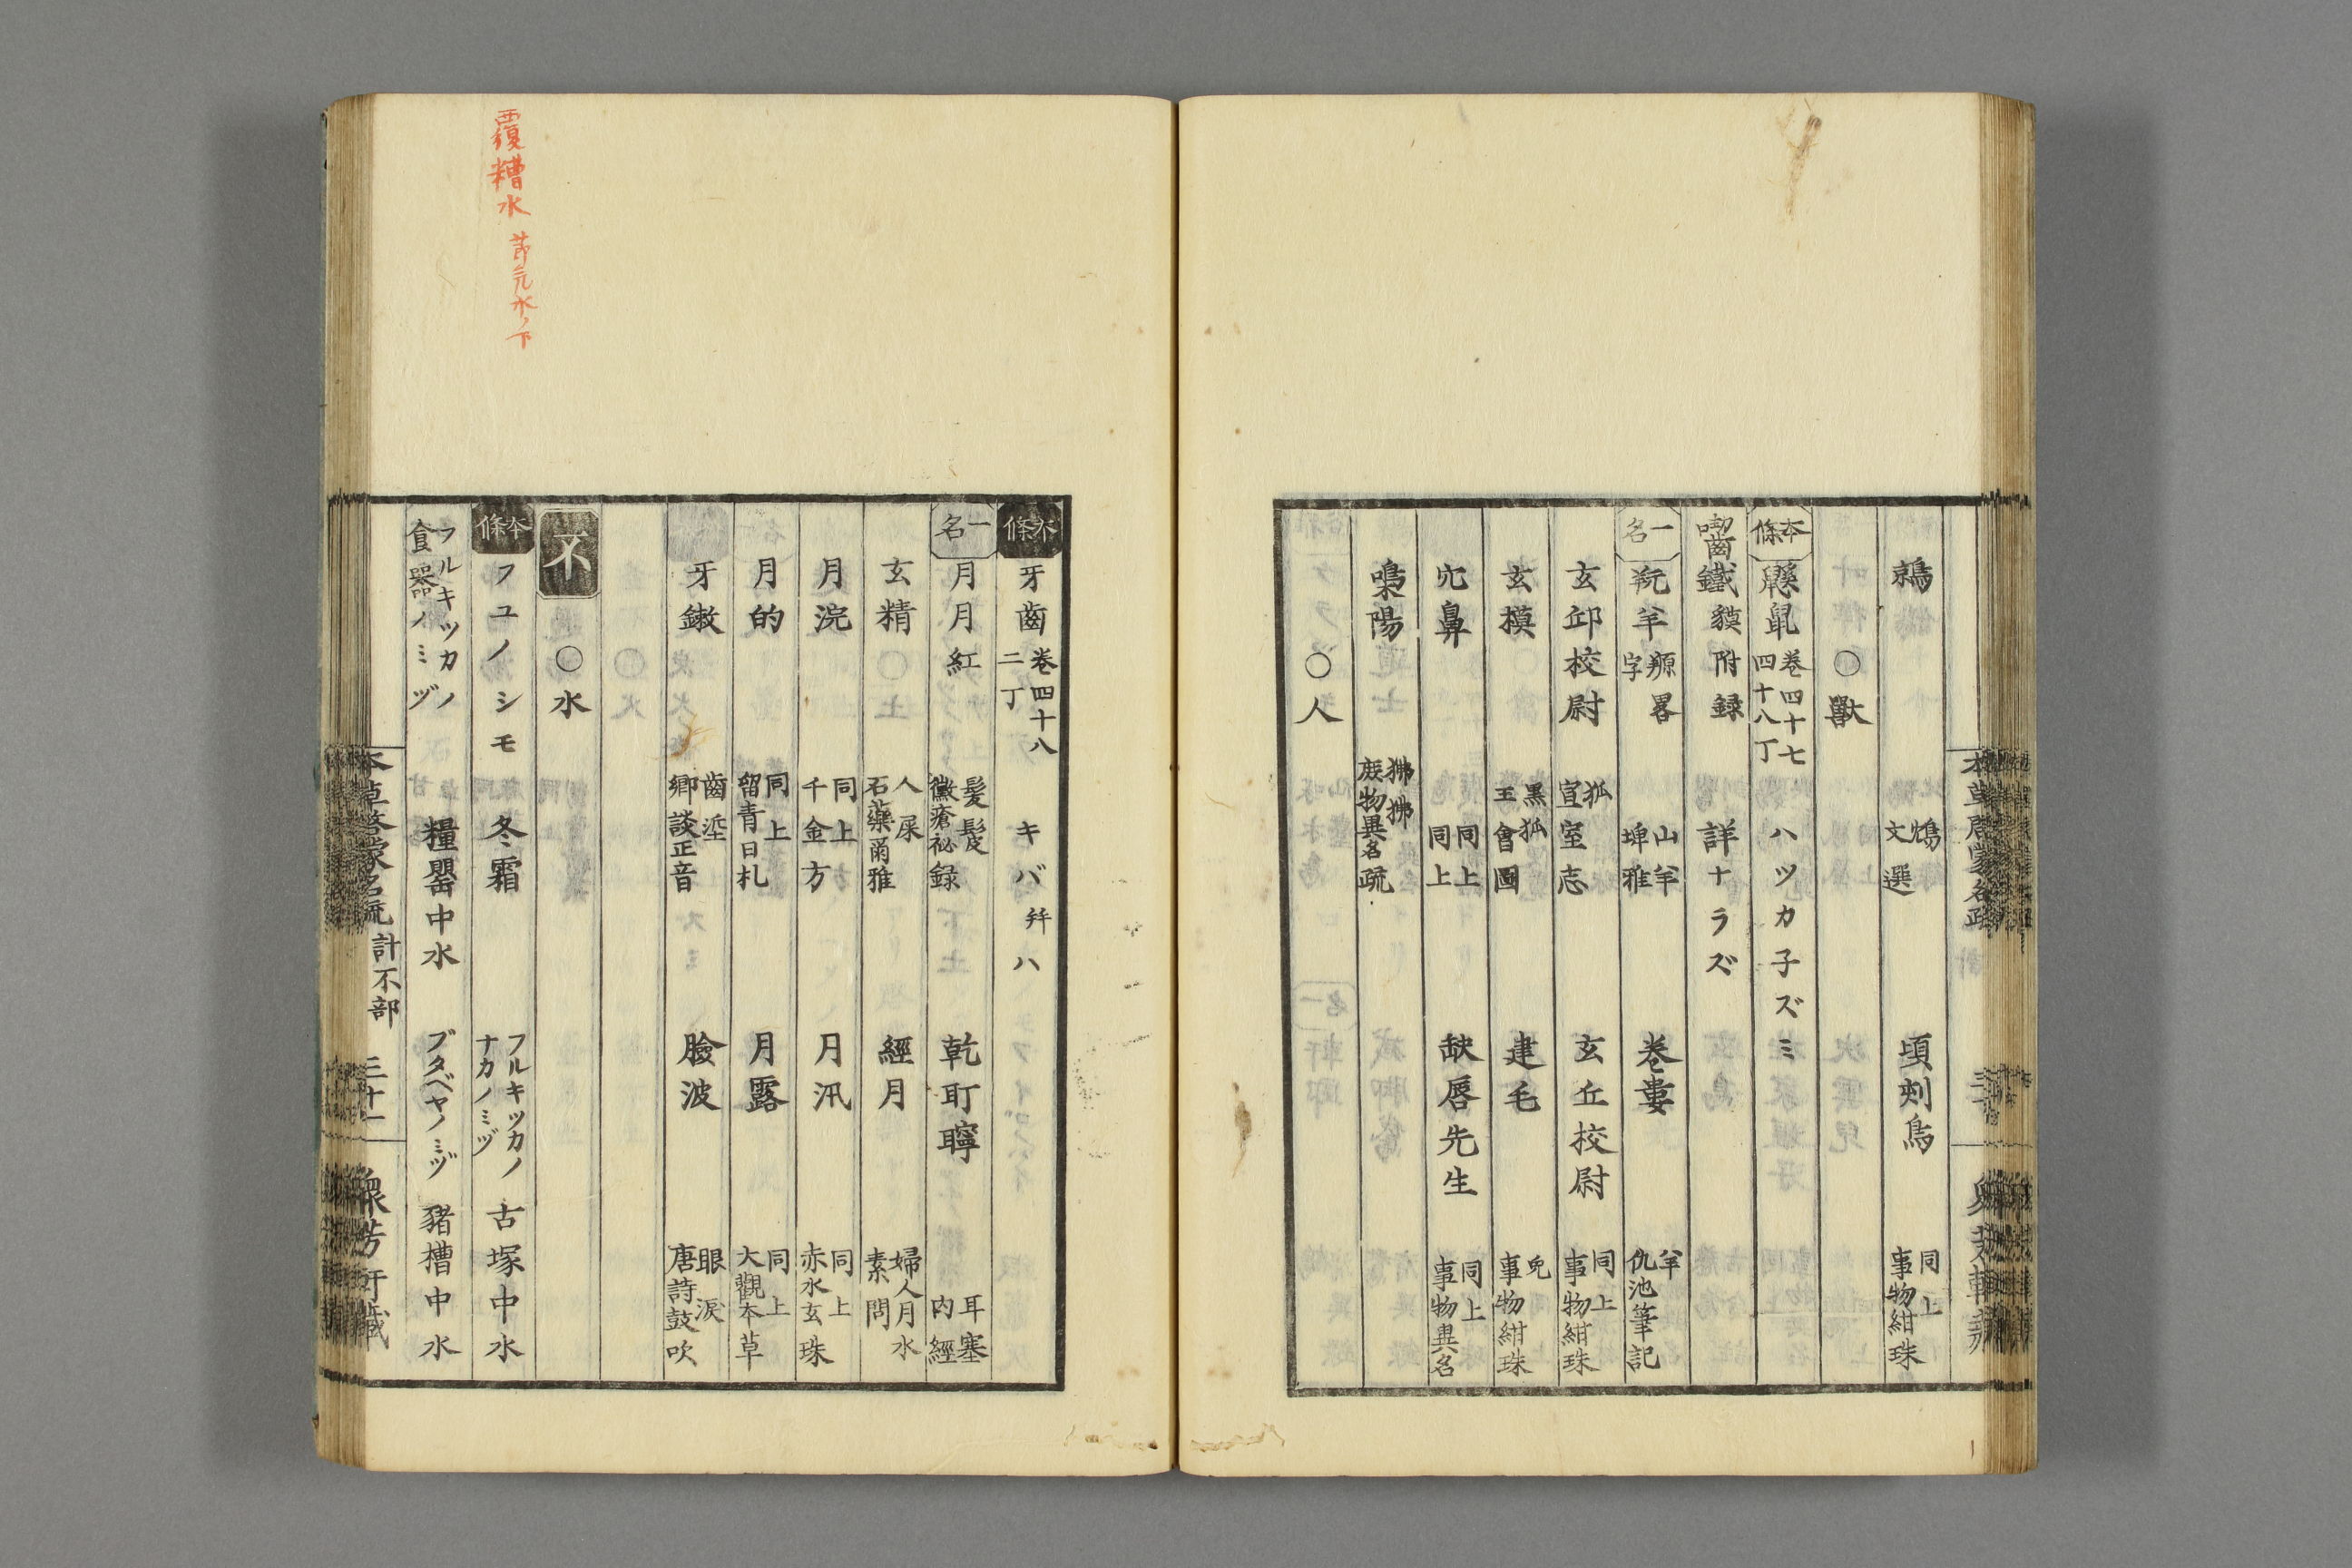 鶁 鴆 文選 頃刾鳥 同上 事物紺珠
〇獸
本條 鼷鼠 卷四十七 四十八丁 ハツカ子ズミ
囓鐵貘 附録 詳ナラズ
一名 羦羊 羱畧字 山羊 埤雅 卷婁 羊 仇池筆記
玄邱校尉 狐 宣室志 玄丘校尉 同上 事物紺珠
玄摸 黑狐 王會圖 建毛 兎 事物紺珠
宂鼻 同上 同上 缺唇先生 同上 事物異名
嘷陽 狒狒 庶物異名疏
〇人
本條 牙齒 卷四十八 二丁 キバ 幷ハ
一名 月月紅 髮髲 黴瘡祕録 乾耵聹 耳塞 内經
玄精 人屎 石藥爾雅 經月 婦人月水 素問
月浣 同上 千金方 月汛 同上 赤水玄珠
月的 同上 留青日札 月露 同上 大觀本草
牙鏉 齒垽 鄉談正音 臉波 眼淚 唐詩鼓吹
不
〇水
本條 フユノシモ 冬霜 フルキツカノナカノミヅ 古塚中水
フルキツカノ食器ノミヅ 糧罌中水 ブタベヤノミヅ 豬槽中水
本草啓蒙名疏 計不部 三十一 衆芳軒藏
覆糟水 節氣水ノ下